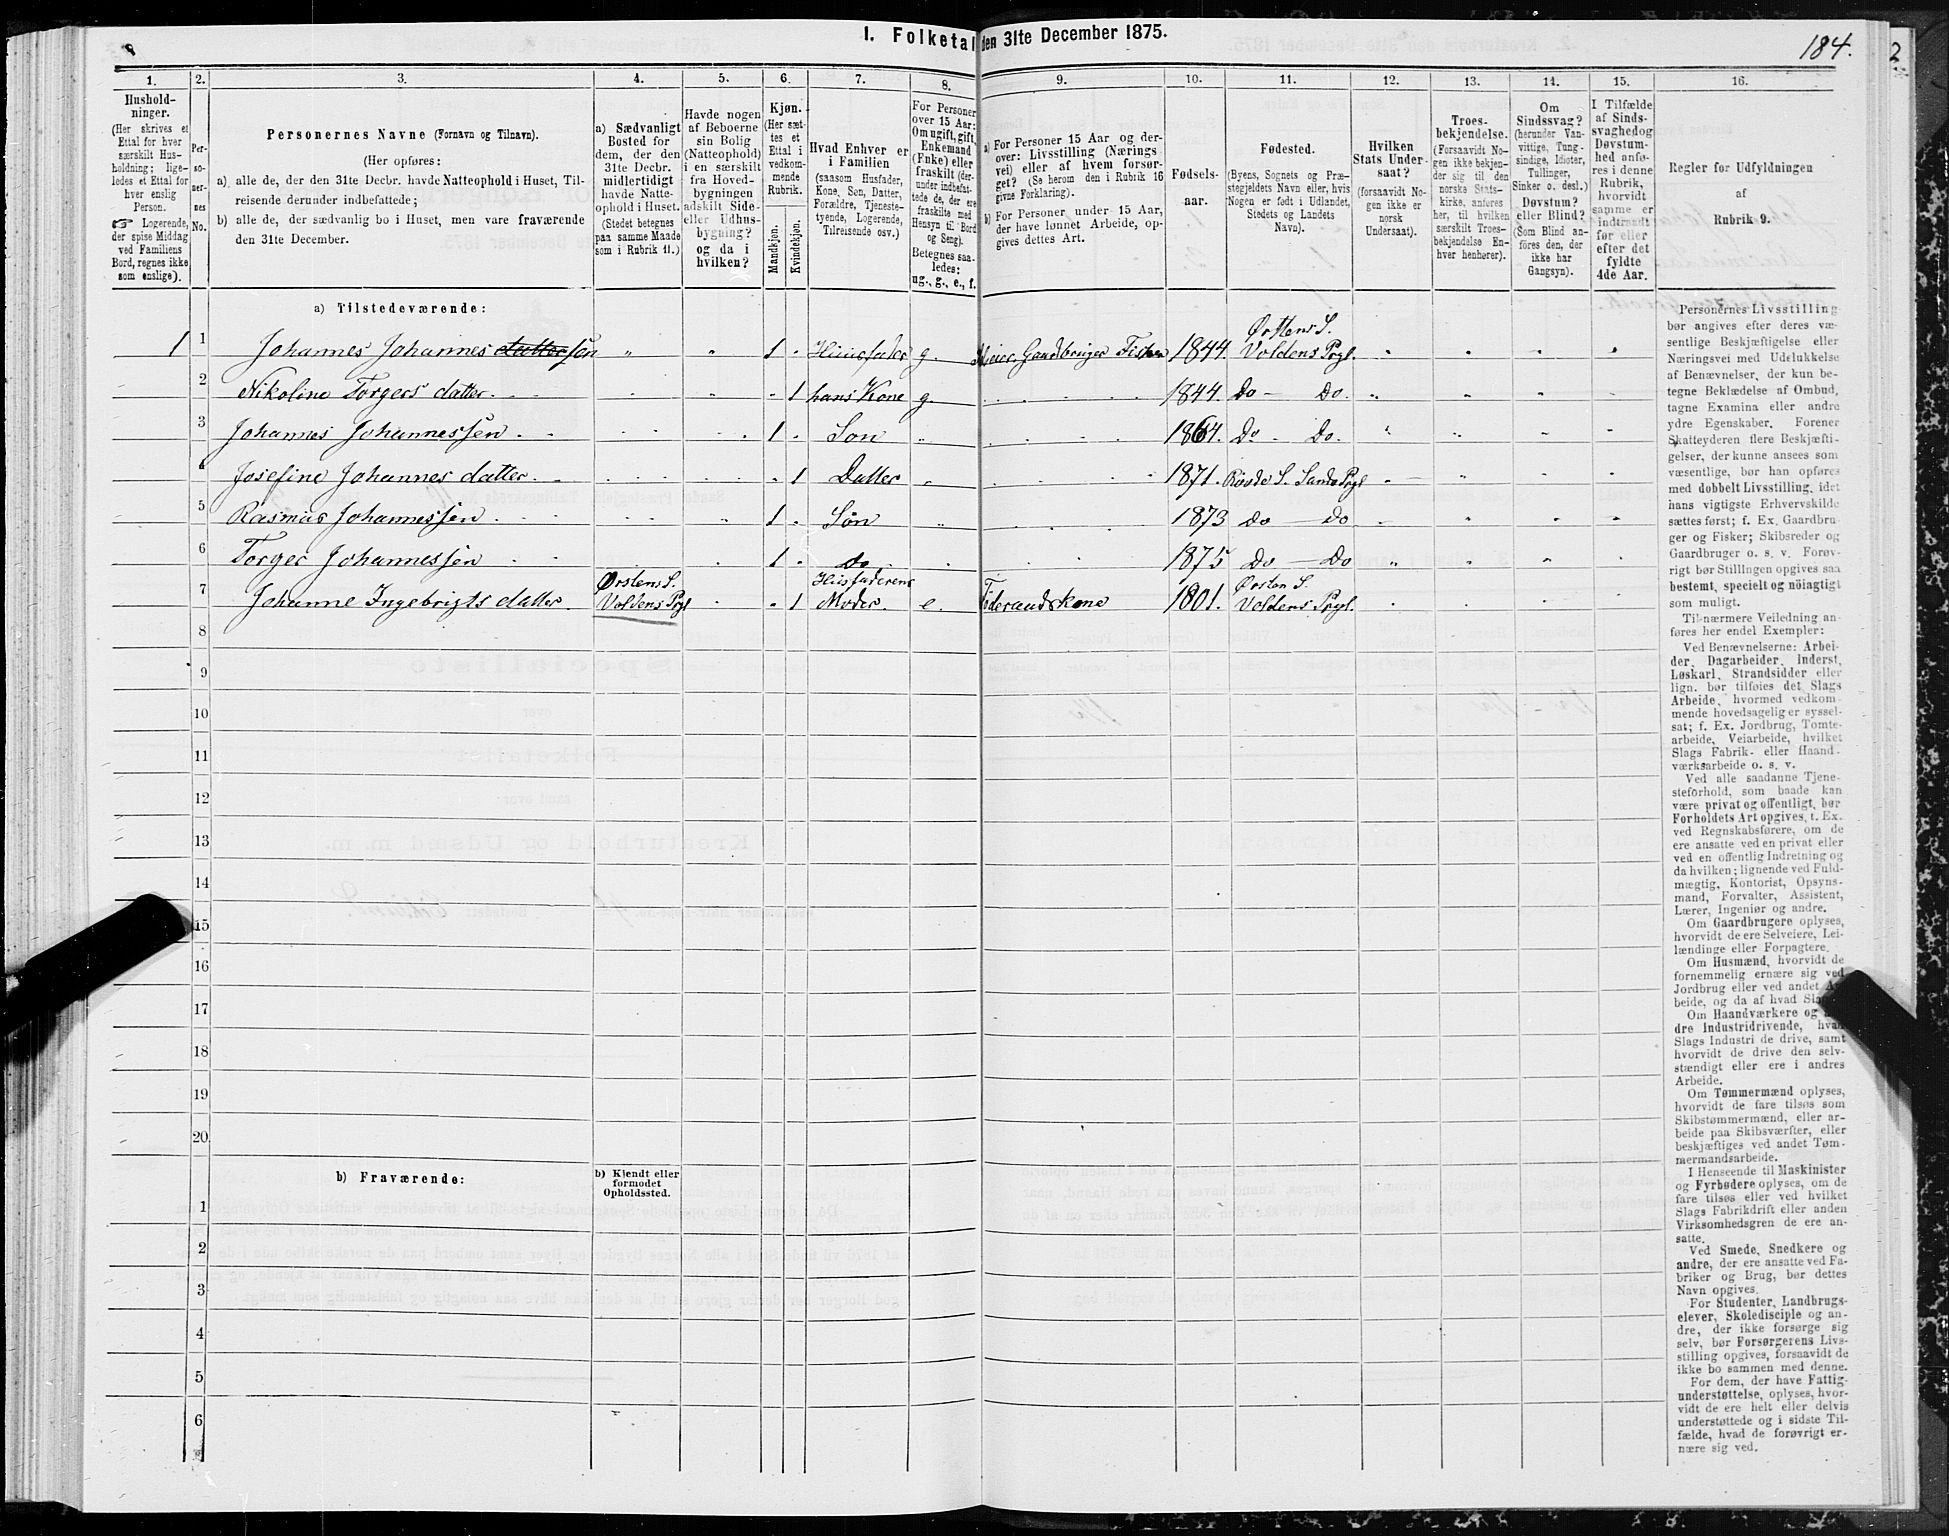 1. Folketal den 31te December 1875.
8
184.
2
1. 2. 3. 4. 5. 6. 7. 8. 9. 10. 11. 12. 13. 14. 15. 16.
Hushold-
ninger.
(Her skrives et
Ettal for hver
særskilt Hus-
holdning; lige-
ledes et Ettal for
hver enslig
Person.
☞ Logerende,
der spise Middag
ved Familiens
Bord, regnes ikke
som enslige).
Per-
so-
ner-
nes
No.
Personernes Navne (Fornavn og Tilnavn).
(Her opføres:
a) alle de, der den 31te Decbr. havde Natteophold i Huset, Til-
reisende derunder indbefattede;
b) alle de, der sædvanlig bo i Huset, men vare fraværende
den 31te December.
a) Sædvanligt
Bosted for
dem, der den
31te Decbr.
midlertidigt
havde Natte-
ophold i Huset.
(Stedet betegnes
paa samme Maade
som i Rubrik 11.)
Havde nogen
af Beboerne
sin Bolig
(Natteophold)
i en særskilt
fra Hoved-
bygningen
adskilt Side-
eller Udhus-
bygning?
og da i
hvilken?
Kjøn.
(Her sæt-
tes et
Ettal i
vedkom-
mende
Rubrik.
Mandkjøn.
Kvindekjøn.
Hvad Enhver er
i Familien
(saasom Husfader,
Kone, Søn, Datter,
Forældre, Tjeneste-
tyende, Logerende,
Tilreisende osv.)
For Personer
over 15 Aar:
Om ugift, gift,
Enkemand
(Enke) eller
fraskilt (der-
under indbefat-
tede de, der ere
fraskilte med
Hensyn til Bord
og Seng).
Betegnes saa-
ledes:
ug., g., e., f.
a) For Personer 15 Aar og der-
over: Livsstilling (Nærings-
vei) eller af hvem forsør-
get? (Se herom den i Rubrik 16
givne Forklaring).
b) For Personer under 15 Aar,
der have lønnet Arbeide, op-
gives dettes Art.
Fødsels-
aar.
Fødested.
(Byens, Sognets og Præ-
stegjeldets Navn eller, hvis
Nogen er født i Udlandet,
Stedets og Landets
Navn).
Hvilken
Stats Under-
saat?
(forsaavidt No-
gen ikke er
norsk
Undersaat).
Troes-
bekjendelse.
(Forsaavidt No-
gen ikke bekjen-
der sig til den
norske Stats-
kirke, anføres
her, til hvilken
særskilt Troes-
bekjendelse En-
hver henhører).
Om
Sindssvag?
(herunder Van-
vittige, Tung-
sindige, Idioter,
Tullinger,
Sinker o. desl.)
Døvstum?
eller Blind?
(Som Blind an-
føres den, der
ikke har
Gangsyn).
I Tilfælde
af Sinds-
svaghed og
Døvstum-
hed anfø-
res i denne
Rubrik,
hvorvidt
samme er
indtraadt
før eller
efter det
fyldte
4de Aar.
Regler for Udfyldningen
af
Rubrik 9.
a) Tilstedeværende:
1 1 Johannes Johannesdattersen „ „ 1 „ Huusfader g. Gaardbruger Fisker 1844. Ørstens S. Voldens Prgl.
2 Nikoline Torgersdatter. 1 hans Kone g. 1844. Do Do.
3 Johannes Johannessen. 1 Søn 1864. Do. Do.
4 Josefine Johannesdatter. 1 Datter 1871. Røvde S. Sands Prgl
5 Rasmus Johannessen 1 Søn 1873 Do Do
6 Torger Johannessen 1 Do 1875 Do Do
7 Johanne Ingebrigtsdatter. Ørstens S. Voldens Prgl 1 Husfaderens Moder. e. Føderaadskone 1801. Ørsten S. Voldens Prgl.
8
9
10
11
12
13
14
15
16
17
18
19
20
b) Fraværende:
b) Kjendt eller
formodet
Opholdssted.
1
2
3
4
5
6
Personernes Livsstilling
bør angives efter deres væ-
sentlige Beskjæftigelse eller
Næringsvei med Udelukkelse
af Benævnelser, der kun be-
tegne Beklædelse af Ombud,
tagne Examina eller andre
ydre Egenskaber. Forener
Skatteyderen flere Beskjæfti-
gelser, der kunne ansees som
væsentlige, bør han opføres
med dobbelt Livsstilling, idet
hans vigtigste Erhvervskilde
sættes først; f. Ex. Gaardbru-
ger og Fisker; Skibsreder og
Gaardbruger o. s. v. Forøv-
rigt bør Stillingen opgives saa
bestemt, specielt og nøiagtigt
som muligt.
Til nærmere Veiledning an-
føres her endel Exempler:
Ved Benævnelserne: Arbei-
der, Dagarbeider, Inderst,
Løskarl, Strandsidder eller
lign. bør tilføies det Slags
Arbeide, hvormed vedkom-
mende hovedsagelig er syssel-
sat; f. Ex. Jordbrug, Tomte-
arbeide, Veiarbeide, hvilket
Slags Fabrik- eller Haand-
værksarbeide o. s. v.
Ved alle saadanne Tjene-
steforhold, som baade kan
være privat og offentligt, bør
Forholdets Art opgives, t. Ex.
ved Regnskabsførere, om de
ere ansatte ved en privat eller
ved en offentlig Indretning og
da hvilken; lignende ved Fuld-
mægtig, Kontorist, Opsyns-
mand, Forvalter, Assistent,
Lærer, Ingeniør og andre.
Om Gaardbrugere oplyses,
hvorvidt de ere Selveiere, Lei-
lændinge eller Forpagtere.
Om Husmænd, hvorvidt de
fornemmelig ernære sig ved
Jordbrug eller ved andet Ar-
beide, og da af hvad Slags.
Om Haandværkere og an-
dre Industridrivende, hvad
Slags Industri de drive, samt
hvorvidt de drive den selv-
stændigt eller ere i andres
Arbeide.
Om Tømmermænd oplyses,
hvorvidt de fare tilsøs som
Skibstømmermænd, eller ar-
beide paa Skibsværfter, eller
beskjæftiges ved andet Tøm-
mermandsarbeide.
I Henseende til Maskinister
og Fyrbødere oplyses, om de
fare tilsøs eller ved hvilket
Slags Fabrikdrift eller anden
Virksomhedsgren de ere an-
satte.
Ved Smede, Snedkere og
andre, der ere ansatte ved Fa-
briker og Brug, bør dettes
Navn opgives.
For Studenter, Landbrugs-
elever, Skoledisciple og an-
dre, der ikke forsørge sig
selv, bør Forsørgerens Livs-
stilling opgives, forsaavidt de
ikke bo sammen med denne.
For dem, der have Fattig-
understøttelse, oplyses, hvor-
vidt de ere helt eller delvis
understøttede og i sidste Til-
fælde, hvad de forøvrigt er-
nære sig ved.